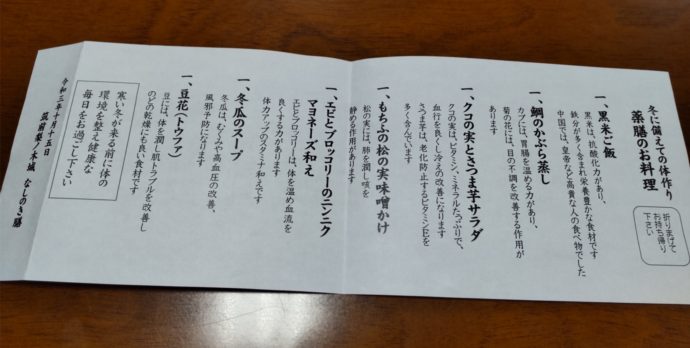 冬に備えての体作り
薬膳のお料理
折りまげて
お持ち帰り
下さい
一、黒米ご飯
黒米は、抗酸化力があり、
鉄分が多く含まれ栄養豊かな食材です
中国では、皇帝など高貴な人の食べ物でした
一、鯛のかぶら蒸し
カブには、胃腸を温める力があり、
菊の花には、目の不調を改善する作用が
あります
一、クコの実とさつま芋サラダ
クコの実は、ビタミン、ミネラルたっぷりで、
血行を良くし冷えの改善になります
さつま芋は、老化防止するビタミンEを
多く含んでいます
一、もちふの松の実味噌かけ
松の実には、肺を潤し咳を
静める作用があります
一、エビとブロッコリーのニンニク
マヨネーズ和え
エビとブロッコリーは、体を温め血流を
良くする力があります
体力アップのスタミナ和えです
一、冬瓜のスープ
冬瓜は、むくみや高血圧の改善、
風邪予防になります
一、豆花（トウファ）
豆には、体を潤し肌トラブルを改善し
のどの乾燥にも良い食材です
寒い冬が来る前に体の
環境を整え健康な
毎日をお過ごし下さい
令和三年十月十五日
筑前鞍ノ木城 なしのき膳